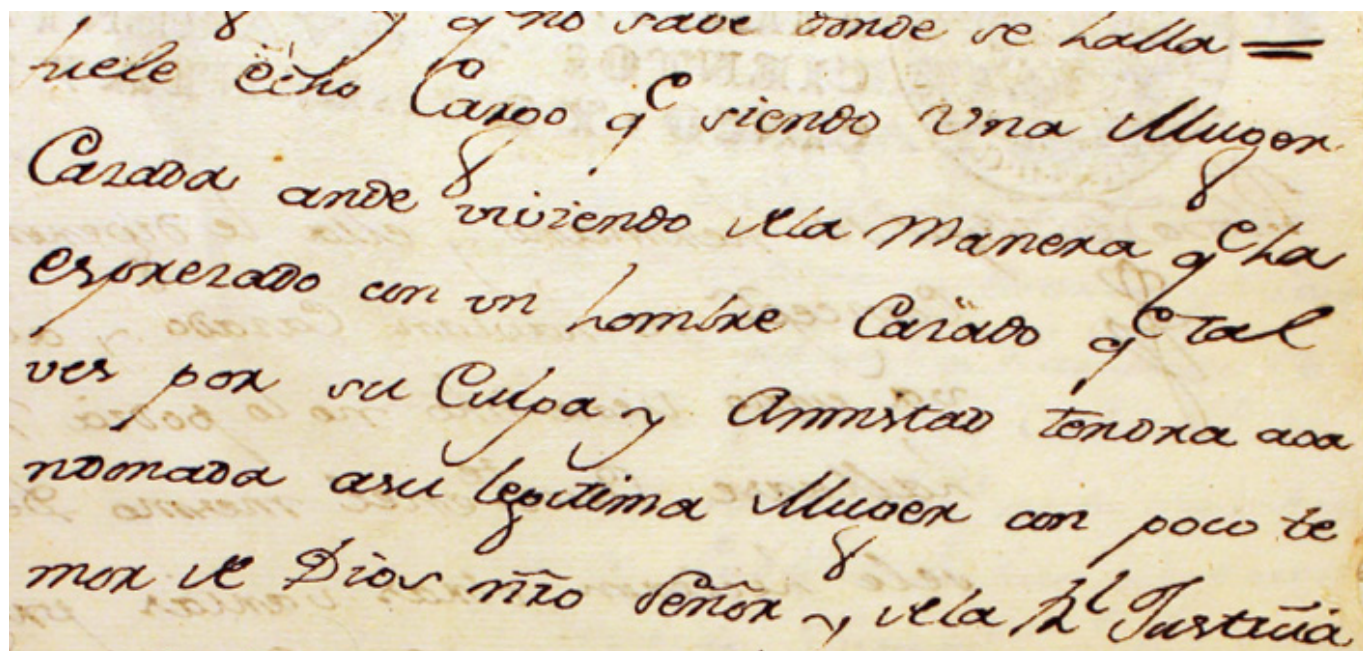 y qe no save donde se halla =
huele echo Cargo qe siendo Una Muger
Casada ande viviendo dela Manera qe ha
espresado con un hombre Casado qe tal
ves por su Culpa y Amistad tendra ava
ndonada asu legitima Muger con poco te
mor de Dios ñro Señor y dela Rl Justicia